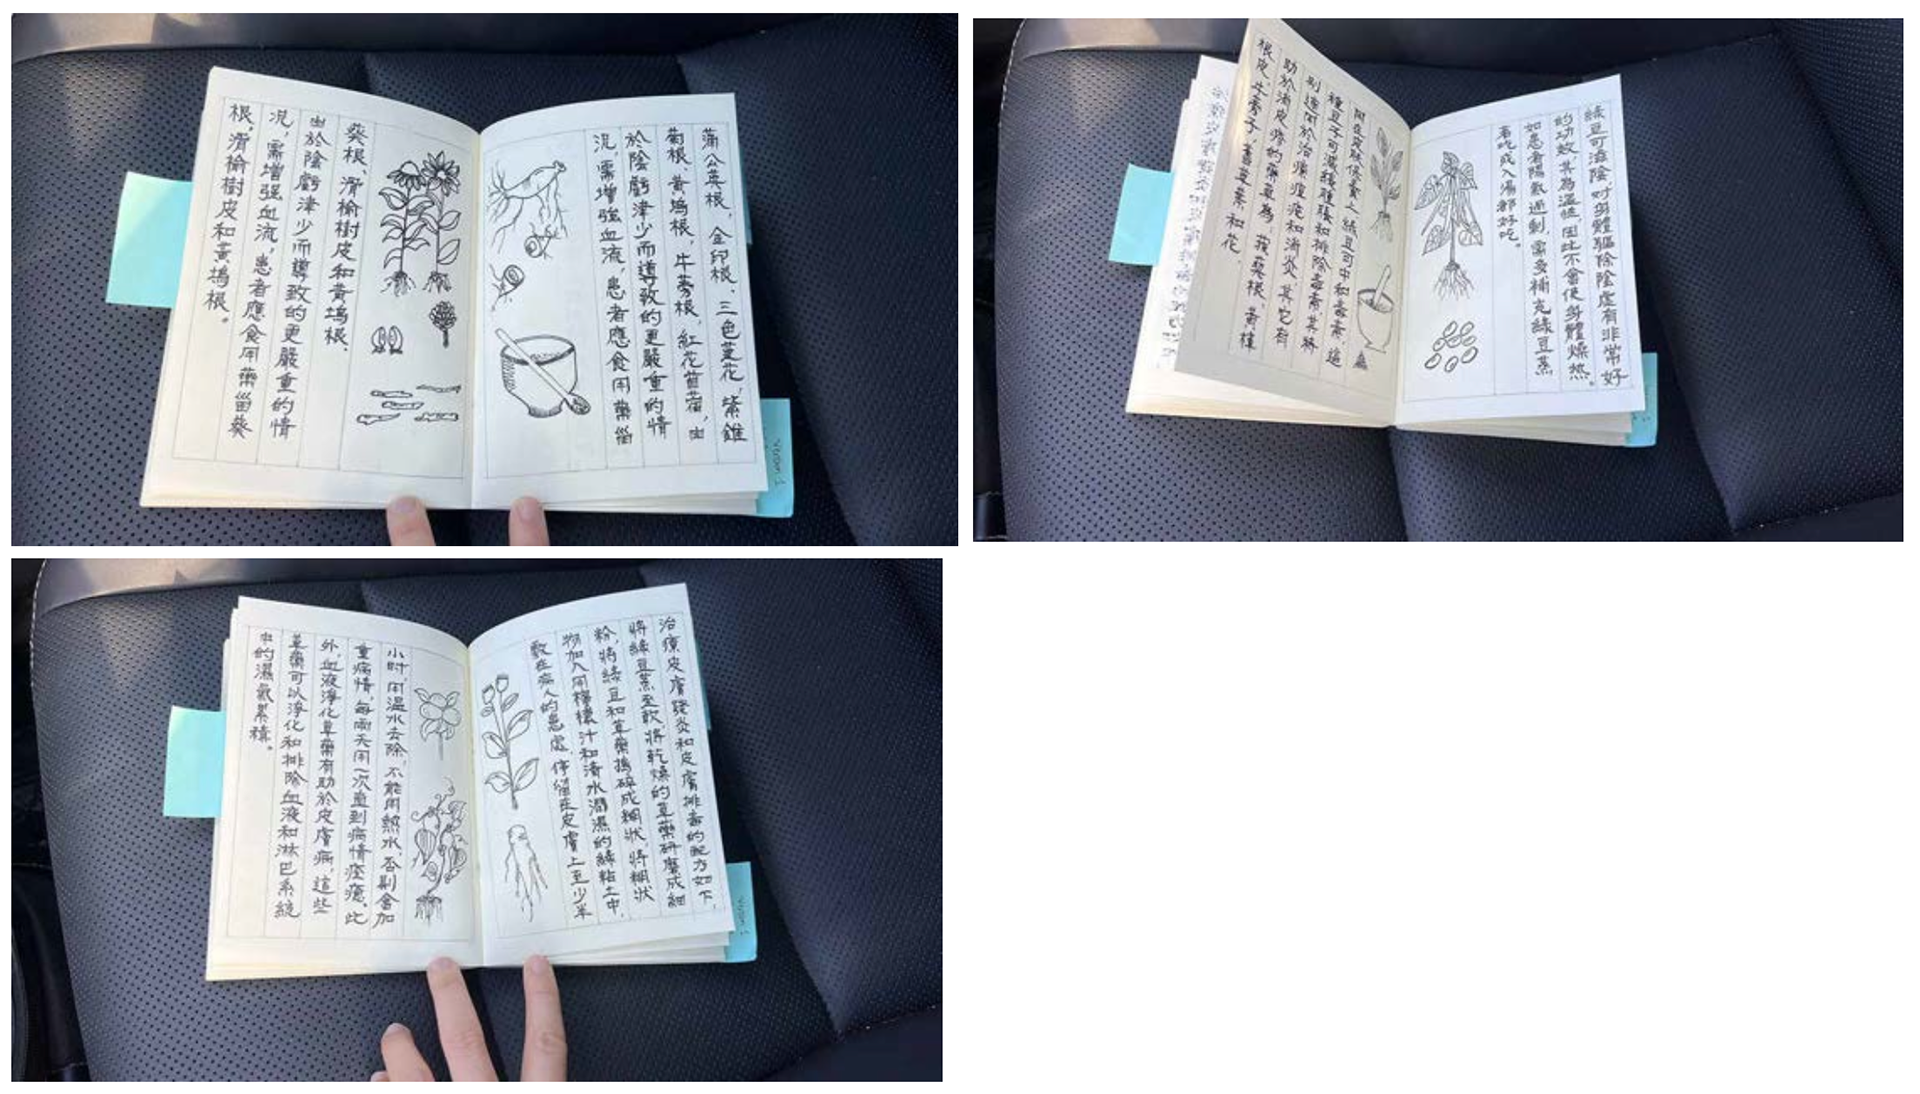 蒲公英根，金印根，三色堇花，紫錐
菊根，黃塢根，牛蒡根，紅花苜蓿，由
於陰虧津少而導致的更嚴重的情
況，需增強血流，患者應食用藥蜀
葵根、滑榆樹皮和黃塢根、
由於陰虧津少而導致的更嚴重的情
況，需增強血流，患者應食用藥蜀葵
根，滑榆樹皮和黃塢根。
綠豆可滋陰，对身體驅除陰虛有非常好
的功效，其為溫性，因此不會使身體燥热。
如患者陽氣過剩，需多補充綠豆，蒸
着吃或入湯都好吃。
用在皮肤侠膏上，綠豆可中和毒素，這
種豆子可減緩腫脹和排除毒素，其特
别適用於治療痘疤和消炎，其它有
助於消皮疹的藥草為，蘋葵根，黃樟
根皮，牛蒡子，蓍草葉和花。
治療皮膚發炎和皮膚排毒的配方如下，
將綠豆蒸至軟，將乾燥的草藥研磨成細
粉，將綠豆和草藥搗碎成糊狀，將糊狀
物加入用檸檬汁和清水潤濕的綠粘土中，
敷在病人的患處，停留在皮膚上至少半
小时，用温水去除，不能用熱水，否則會加
重病情，每兩天用一次直到病情痊癒，此
外，血液淨化草藥有助於皮膚病，這些
草藥可以淨化和排除血液和淋巴系統
中的濕氣累積。